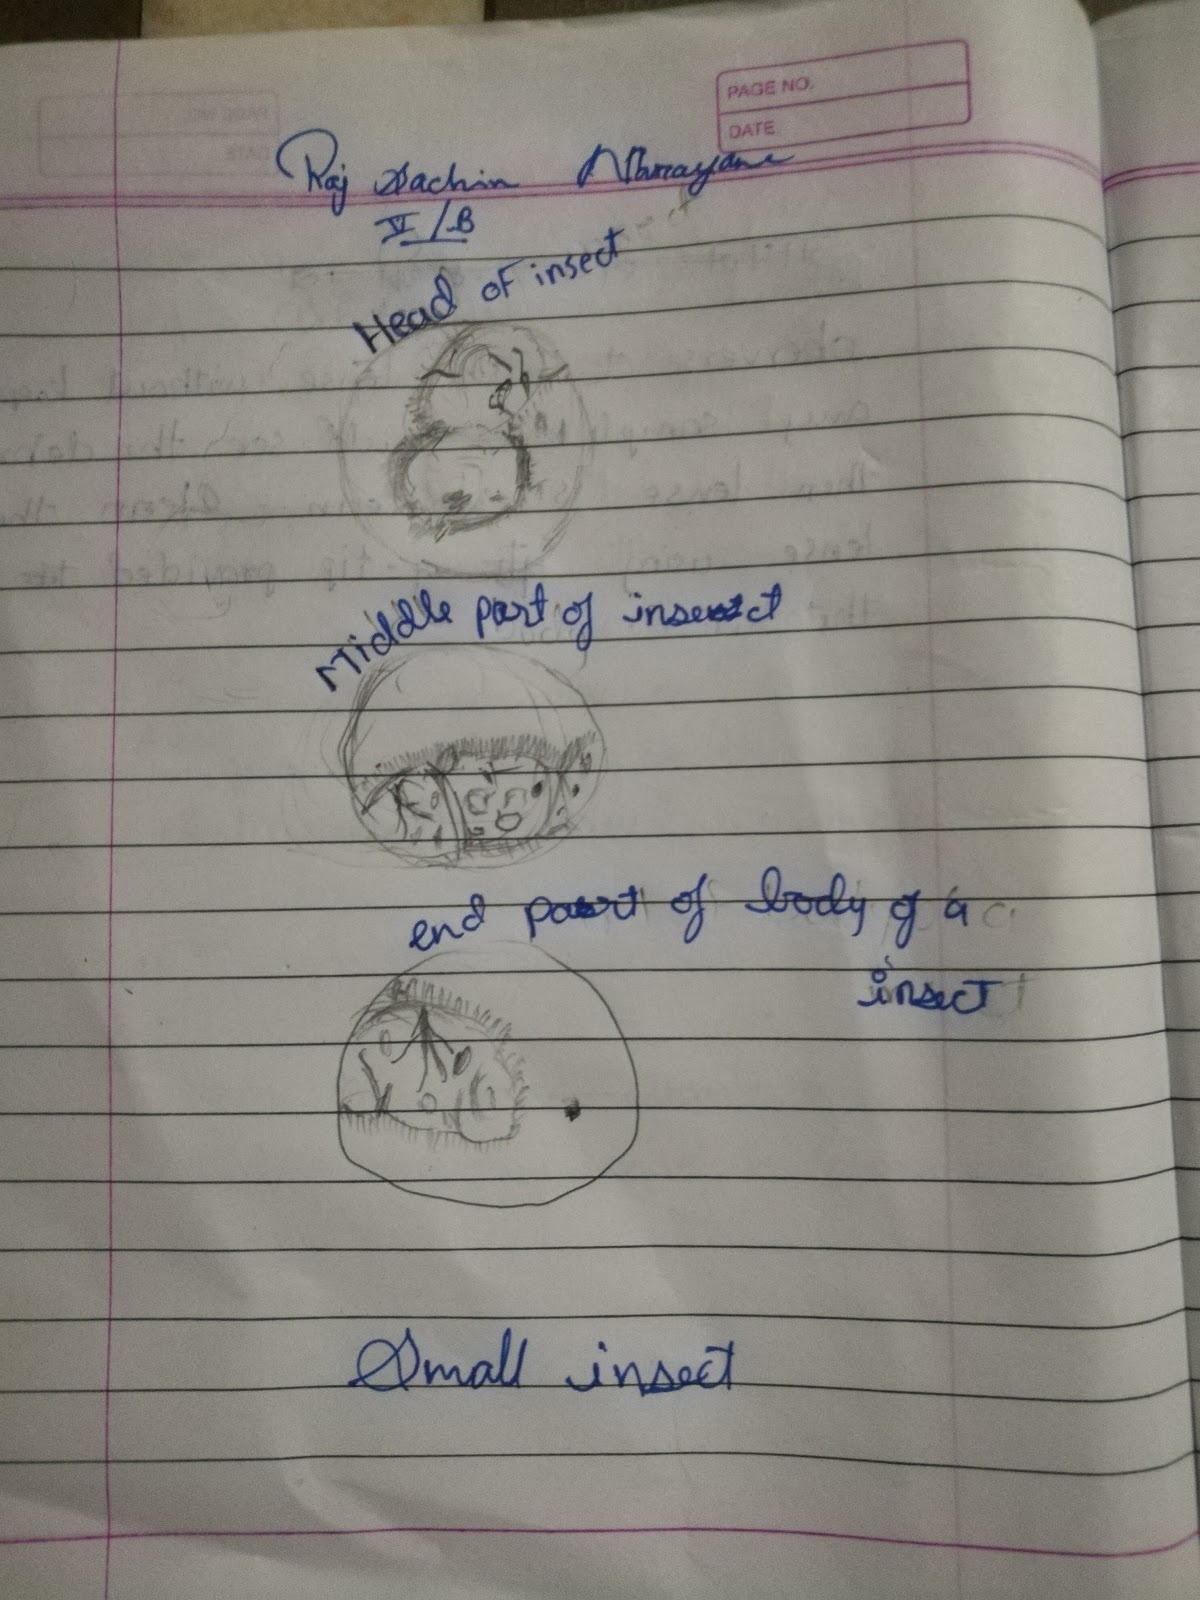 PAGE NO.
DATE
Raj Sachin
V/B
Head of insect
Middle part of insect
end part of body of a
insect
Small insect